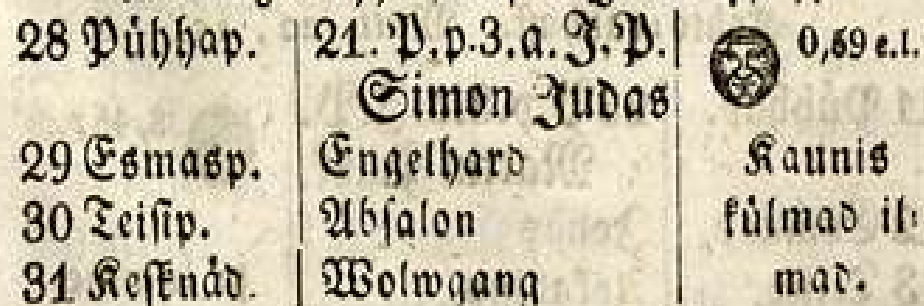 28 Pühhap. 21. P. p. 3. a. J. P. 0,69 e. l.
Simon Judas
29 Esmasp. Engelhard Kaunis
30 Teisip. Absalon külmad il-
31 Kesknäd. Wolwgang mad.